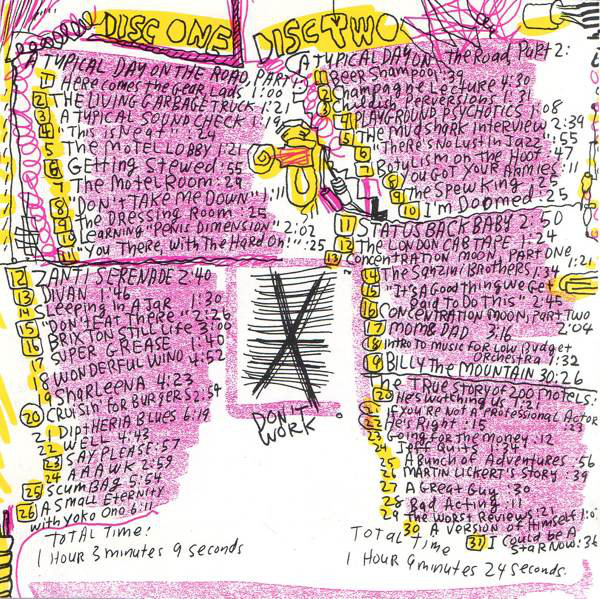 DISC ONE
A TYPICAL DAY ON THE ROAD, PART 1:
1 Here comes the Gear, Lads 1:00
2 THE LIVING GARBAGE TRUCK 1:21
3 A TYPICAL SOUND CHECK 1:19
4 "This is Neat" :24
5 The MoTEL LOBBY 1:21
6 GETTing Stewed :55
7 The MoTel Room :29
8 "DON'T TAKE ME DOWN" 1:11
9 The DRessing Room :25
10 Learning Penis Dimension 2:02
11 "You There, with The Hard On!" :25
12 ZANTI SERENADE 2:40
13 DIVAN 1:46
14 Sleeping in A JAR 1:30
15 "DON'T EAT THERE" 2:26
16 BRIXTON STill LiFe 3:00
17 SUPER GREASE 1:40
18 WONDERFUL WINO 4:52
19 SHARLeenA 4:23
20 CRuisin' for BuRgeRs 2:54
21 DIPTHERIA BLUES 6:19
22 WELL 4:43
23 SAY PLEASE :57
24 AAAWK 2:57
25 SCUMBAG 5:54
26 A SMALL ETERNITY
with YOKO ONO 6:11
TOTAL TIME:
1 HOUR 3 minutes 9 seconds
DON'T
WORK
DISC TWO
A TYPICAL DAY ON The Road, PART 2:
1 Beer Shampoo 1:39
2 Champagne LecTure 4:30
3 Childish Perversions 1:31
4 PLAYGROUND PSYCHOTICS 1:08
5 The Mudshark Interview 2:39
6 There's No Lust in Jazz :55
7 BoTulism on The Hoof :47
8 You GOT YOUR ARMIES :11
9 The Spew King :25
10 I'm Doomed :25
11 STATUS BACK BABY 2:50
12 The LONDON CAB TAPE 1:24
13 CONCENTRATION MOON, PART ONE 1:21
14 The Sanzini Brothers 1:34
15 "It's A Good Thing we GeT
Paid to Do This" 2:45
16 CONCENTRATION MOON, PART TWO 2:04
17 MOM & DAD 3:16
18 INTRO TO MUSIC FOR LOW Budget
ORchestra 1:32
19 BILLY THE MOUNTAIN 30:26
The TRUE STORY OF 200 MOTELS:
20 He's Watching Us 1:21
21 IF YOU'RE NOT A PROFESSIONAL ACTOR :23
22 He's Right :15
23 Going for The Money :12
24 Jeff Quits 1:34
25 A Bunch of Adventures :56
26 MARTIN LICKERT'S STORY :39
27 A Great Guy :30
28 Bad Acting :11
29 The Worst Reviews :21
30 A VERSION of HIMself 1:0
31 I Could be A
STAR NOW :36
TOTAL TIME
1 HOUR 9 minutes 24 seconds.